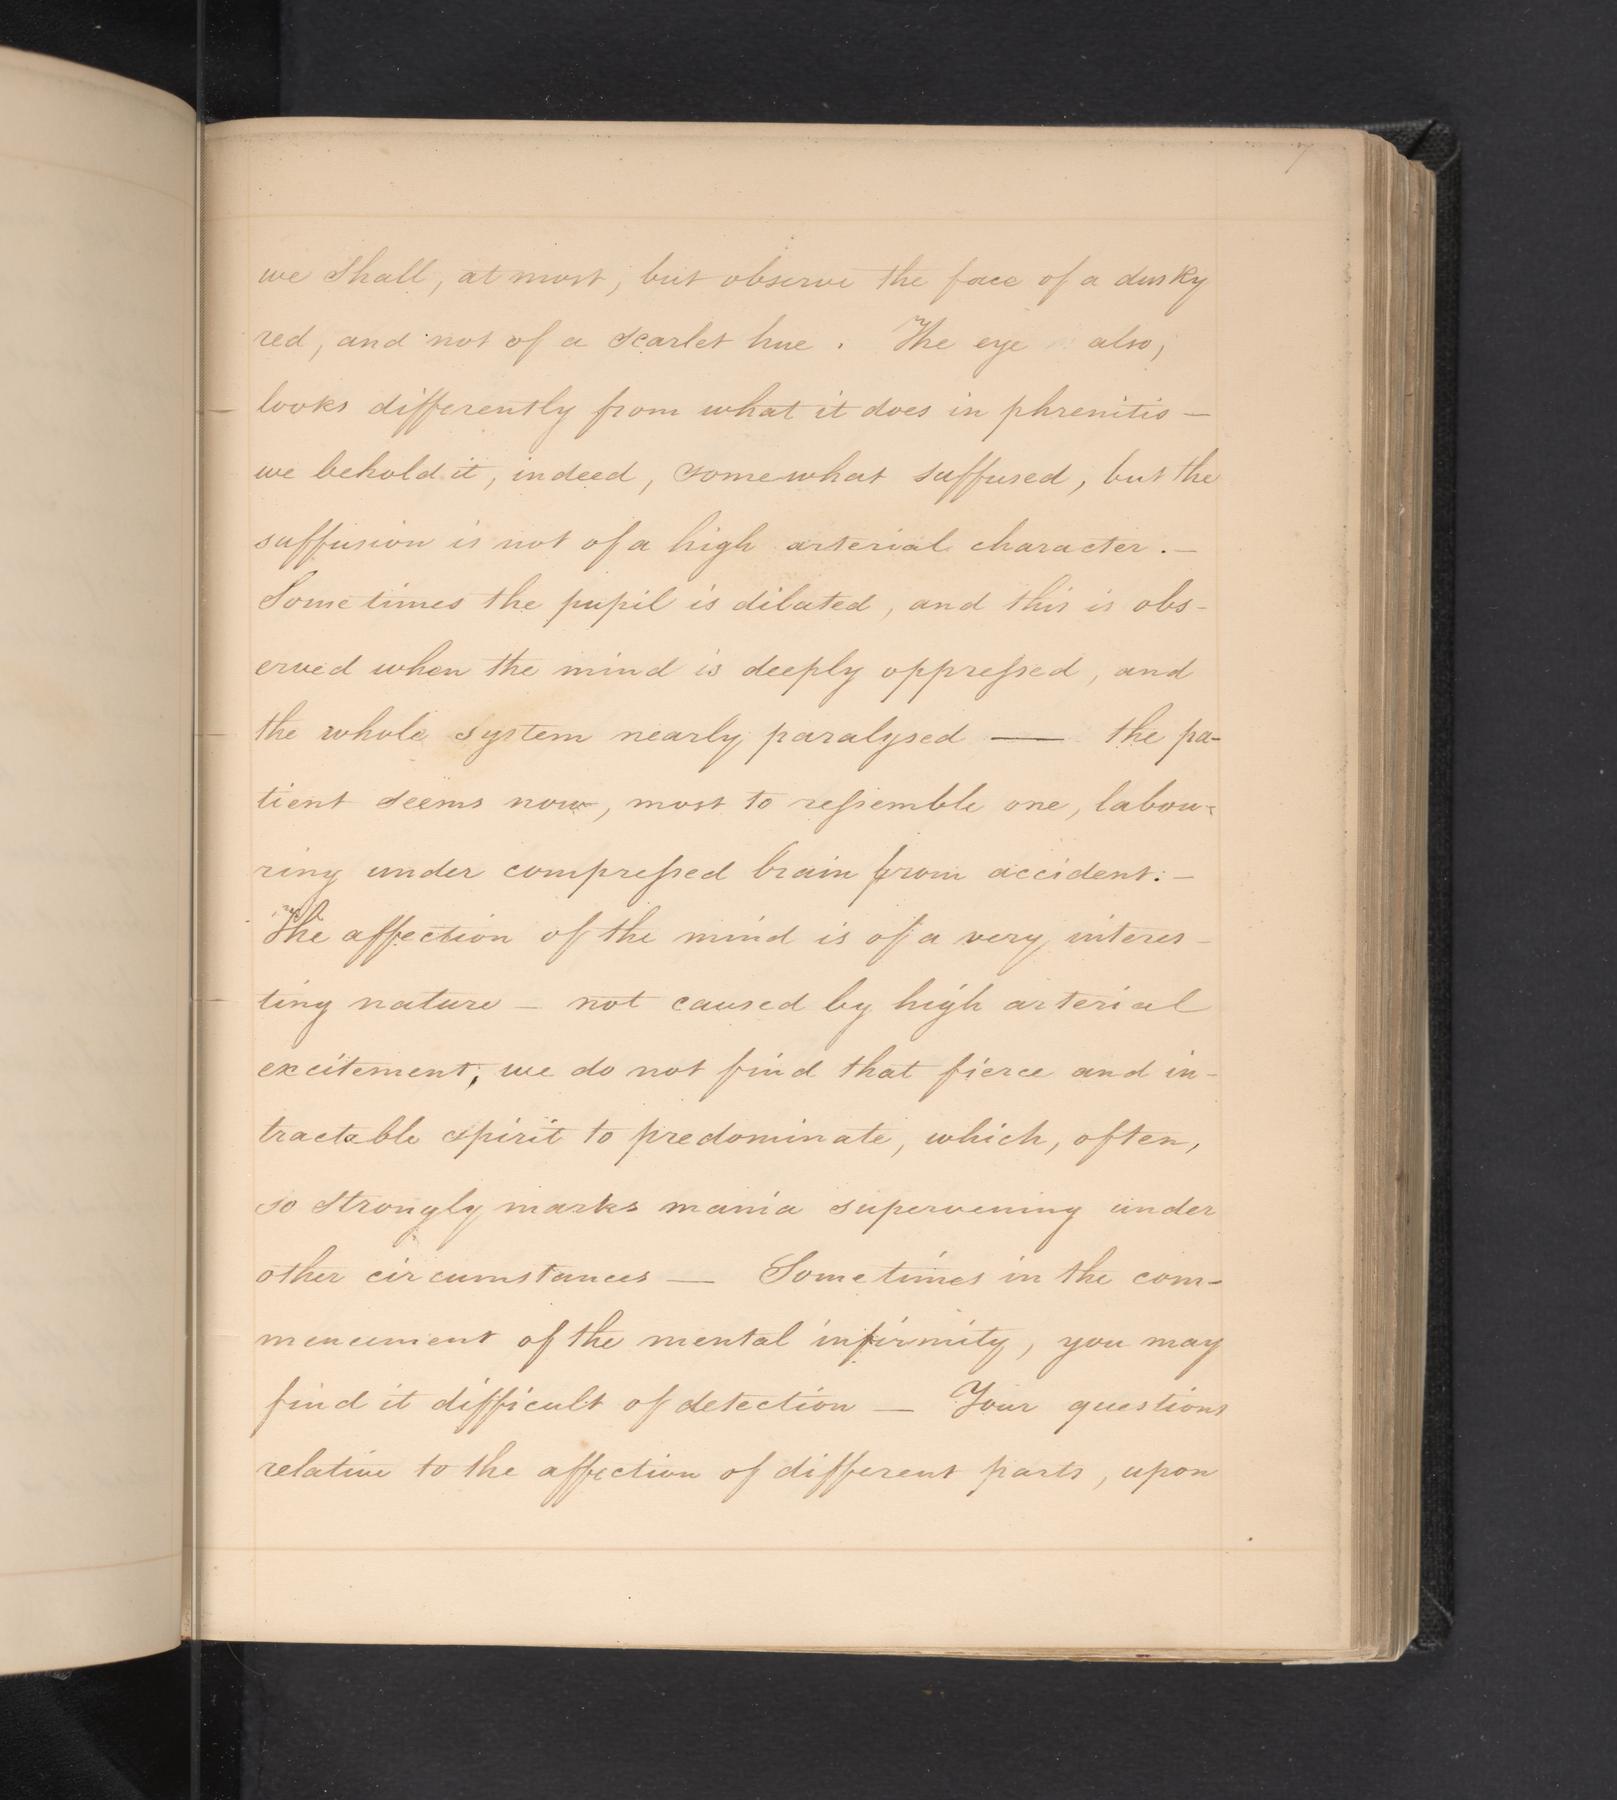 7
we shall, at most, but observe the face of a dusky
red, and not of a scarlet hue. The eye also,
looks differently from what it does in phrenitis —
we behold it, indeed, somewhat suffused, but the
suffusion is not of a high arterial character. —
Sometimes the pupil is dilated, and this is obs-
erved when the mind is deeply oppreſsed, and
the whole system nearly paralysed — the pa-
tient seems now, most to reſsemble one, labou-
ring under compreſsed brain from accident. —
The affection of the mind is of a very interes-
ting nature — not caused by high arterial
excitement; we do not find that fierce and in-
tractable spirit to predominate, which, often,
so strongly marks mania supervening under
other circumstances — Sometimes in the com-
mencement of the mental infirmity, you may
find it difficult of detection — Your questions
relative to the affection of different parts, upon